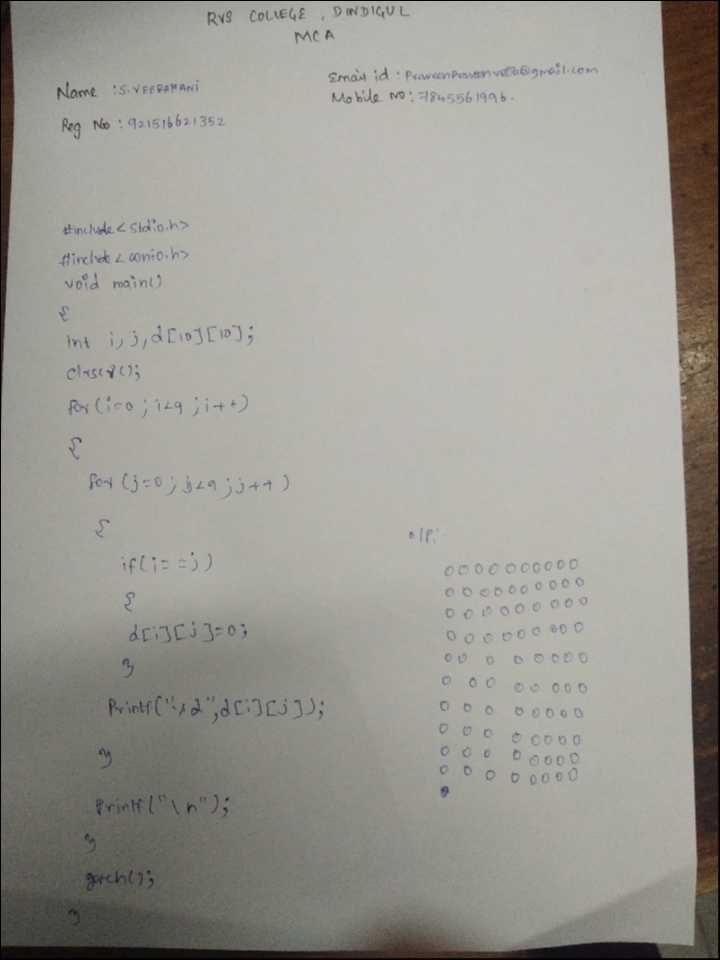 RVS COLLEGE, DINDIGUL
MCA
Name : S.VEERAMANI
Email id : PraveenPraveen
Mobile NO: 7845561996.
Reg No : 921516621352
#include<stdio.h>
#include<conio.h>
void main()
{
int i,j,d[10][10];
clrscr();
for(i=0;i<9;i++)
{
for(j=0;j<9;j++)
{
if(i==j)
{
d[i][j]=0;
}
Printf("%d",d[i][j]);
}
Printf("\n");
}
getch();
}
o/p:
0 0 0 0 0 0 0 0 0
0 0 0 0 0 0 0 0 0
0 0 0 0 0 0 0 0 0
0 0 0 0 0 0 0 0 0
0 0 0 0 0 0 0 0
0 0 0 0 0 0 0 0
0 0 0 0 0 0 0 0
0 0 0 0 0 0 0 0
0 0 0 0 0 0 0 0
0 0 0 0 0 0 0 0